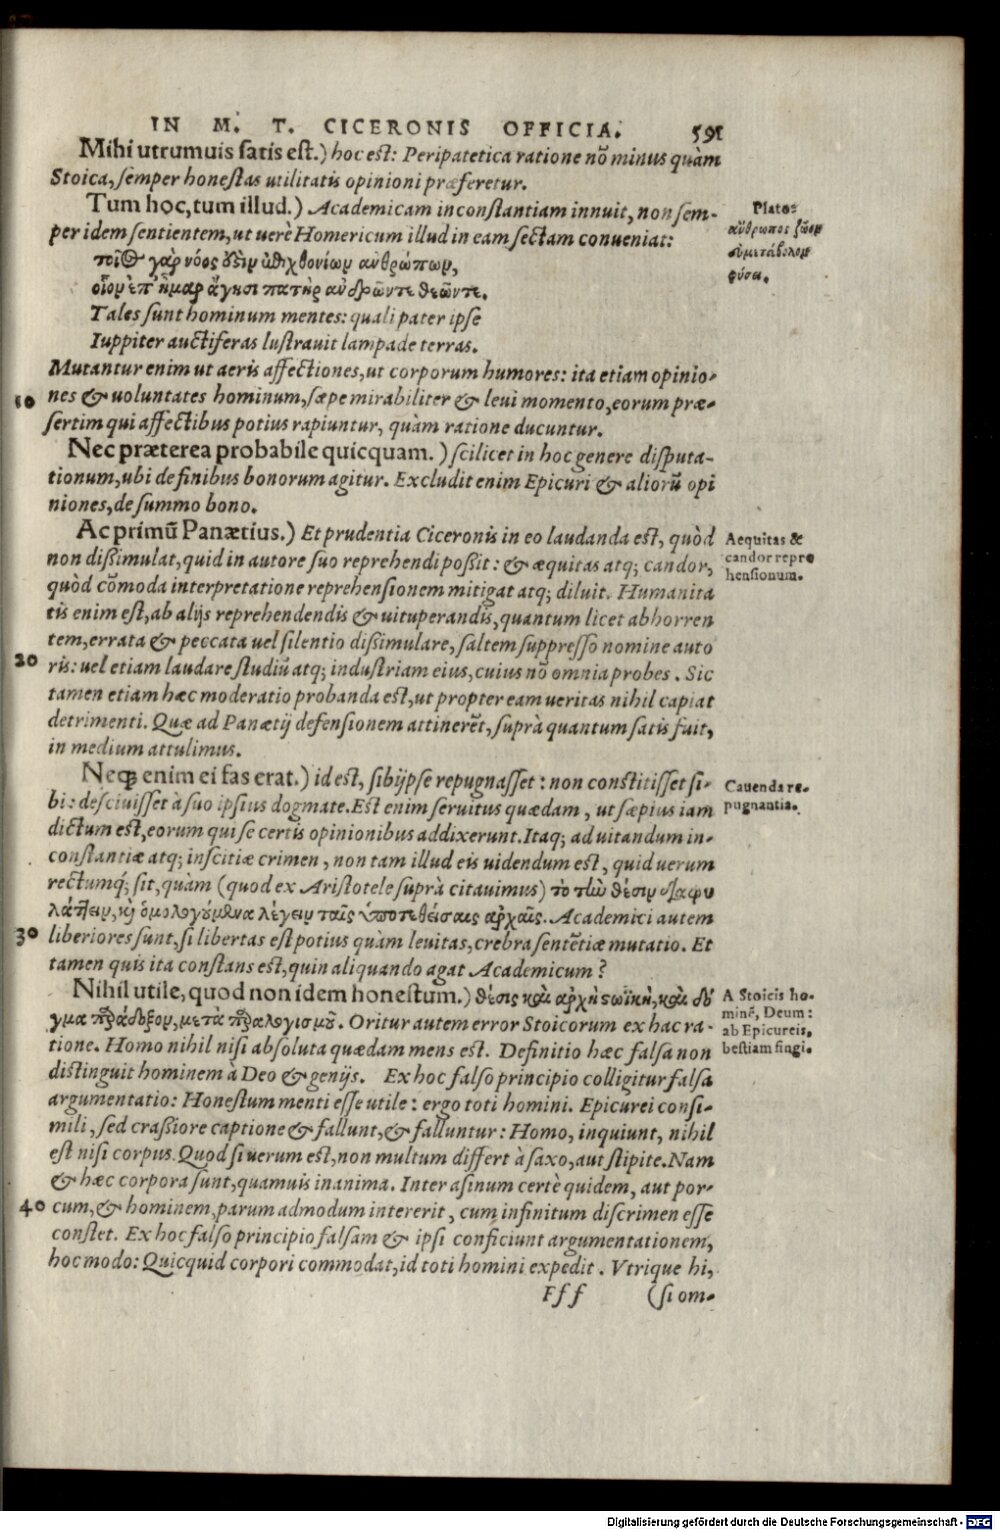 IN M. T. CICERONIS OFFICIA. 591
Mihi utrumuis satis est.) hoc est: Peripatetica ratione nõ minus quàm
Stoica, semper honestas utilitatis opinioni præferetur.
Tum hoc, tum illud.) Academicam inconstantiam innuit, non sem-
per idem sentientem, ut uerè Homericum illud in eam sectam conueniat:
Plato:
ἄνθρωπος ζῶον
εὐμετάβολον
φύσει.
τοῖος γὰρ νόος ὅξὶν ἐπιχθονίων ἀνθρώπων,
οἷον ἐπ' ἦμαρ ἄγησι πατὴρ ἀνδρῶντε θεῶντε.
Tales sunt hominum mentes: quali pater ipse
Iuppiter auctiferas lustrauit lampade terras.
Mutantur enim ut aeris affectiones, ut corporum humores: ita etiam opinio-
10 nes & uoluntates hominum, sæpe mirabiliter & leui momento, eorum præ-
sertim qui affectibus potius rapiuntur, quàm ratione ducuntur.
Nec præterea probabile quicquam.) scilicet in hoc genere disputa-
tionum, ubi de finibus bonorum agitur. Excludit enim Epicuri & aliorũ opi
niones, de summo bono.
Ac primũ Panætius.) Et prudentia Ciceronis in eo laudanda est, quòd
non dissimulat, quid in autore suo reprehendi possit: & æquitas atq; candor,
quòd cõmoda interpretatione reprehensionem mitigat atq; diluit. Humanita
tis enim est, ab alijs reprehendendis & uituperandis, quantum licet abhorren
tem, errata & peccata uel silentio dissimulare, saltem suppresso nomine auto
20 ris: uel etiam laudare studiũ atq; industriam eius, cuius nõ omnia probes. Sic
tamen etiam hæc moderatio probanda est, ut propter eam ueritas nihil capiat
detrimenti. Quæ ad Panætij defensionem attinerẽt, suprà quantum satis fuit,
in medium attulimus.
Aequitas &
candor repre
hensionum.
Neq; enim ei fas erat.) id est, sibijpse repugnasset: non constitisset si-
bi: desciuisset à suo ipsius dogmate. Est enim seruitus quædam, ut sæpius iam
dictum est, eorum qui se certis opinionibus addixerunt. Itaq; ad uitandum in-
constantiæ atq; inscitiæ crimen, non tam illud eis uidendum est, quid uerum
rectumq́; sit, quàm (quod ex Aristotele suprà citauimus) τὸ τὴν θέσιν διαφυ
λάττειν, κὴ ὁμολογούμενα λέγειν ταῖς ὑποτεθείσαις ἀρχαῖς. Academici autem
30 liberiores sunt, si libertas est potius quàm leuitas, crebra sentẽtiæ mutatio. Et
tamen quis ita constans est, quin aliquando agat Academicum?
Cauenda re-
pugnantia.
Nihil utile, quod non idem honestum.) θέσις καὶ ἀρχὴ στωϊκὴ, καὶ δό
γμα παράδοξον, μετὰ παραλογισμοῦ. Oritur autem error Stoicorum ex hac ra-
tione. Homo nihil nisi absoluta quædam mens est. Definitio hæc falsa non
distinguit hominem à Deo & genijs. Ex hoc falso principio colligitur falsa
argumentatio: Honestum menti esse utile: ergo toti homini. Epicurei consi-
mili, sed crassiore captione & fallunt, & falluntur: Homo, inquiunt, nihil
est nisi corpus. Quod si uerum est, non multum differt à saxo, aut stipite. Nam
& hæc corpora sunt, quamuis inanima. Inter asinum certè quidem, aut por-
40 cum, & hominem, parum admodum intererit, cum infinitum discrimen esse
constet. Ex hoc falso principio falsam & ipsi conficiunt argumentationem,
hoc modo: Quicquid corpori commodat, id toti homini expedit. Vtrique hi,
A Stoicis ho-
minẽ, Deum:
ab Epicureis,
bestiam fingi.
Fff (si om-
Digitalisierung gefördert durch die Deutsche Forschungsgemeinschaft - DFG